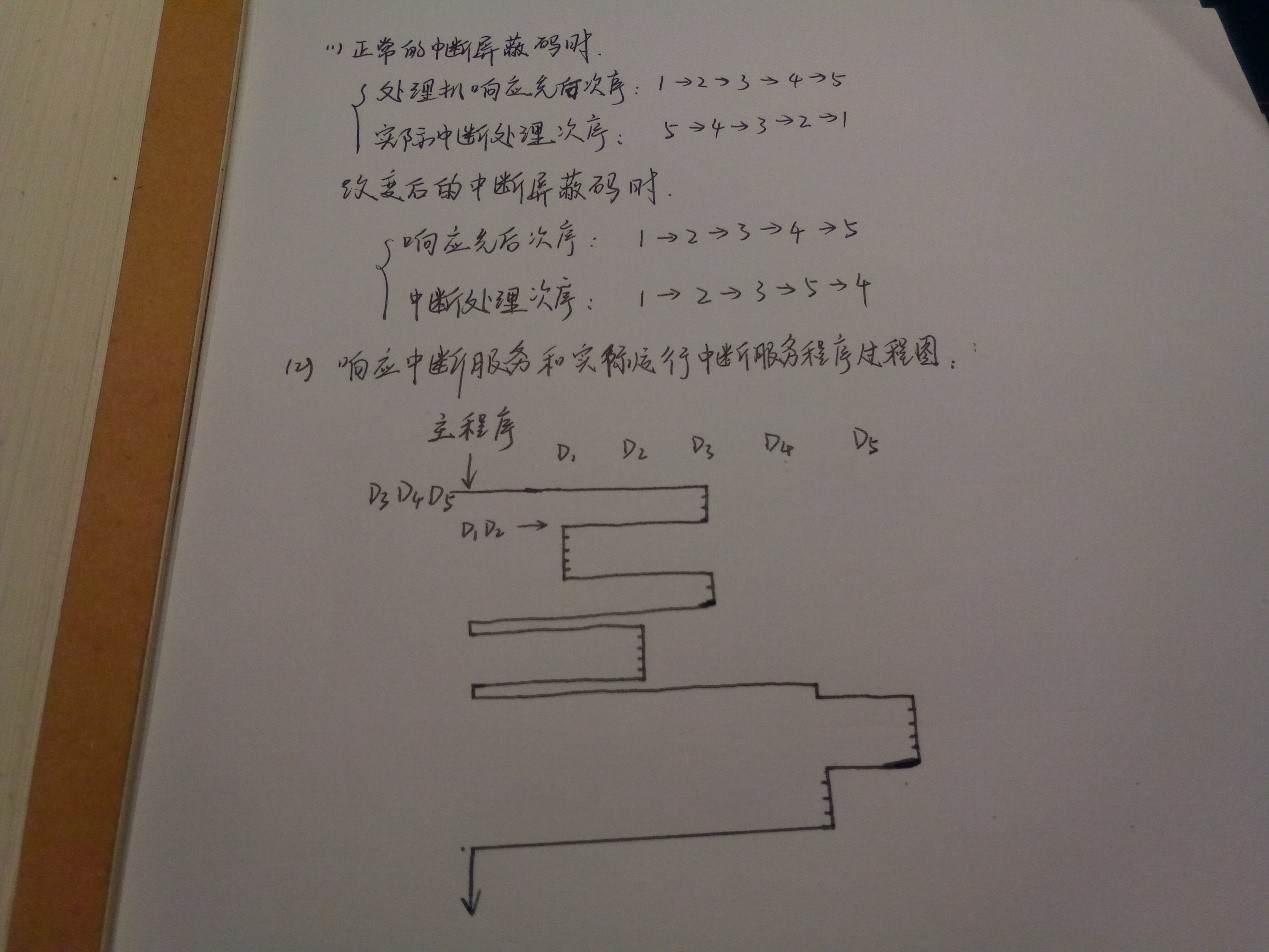 (1) 正常的中断屏蔽码时.
处理机响应先后次序: 1→2→3→4→5
实际中断处理次序: 5→4→3→2→1
改变后的中断屏蔽码时.
响应先后次序: 1→2→3→4→5
中断处理次序: 1→2→3→5→4
(2) 响应中断服务和实际运行中断服务程序过程图:
主程序
D1 D2 D3 D4 D5
D3 D4 D5
D1 D2 →